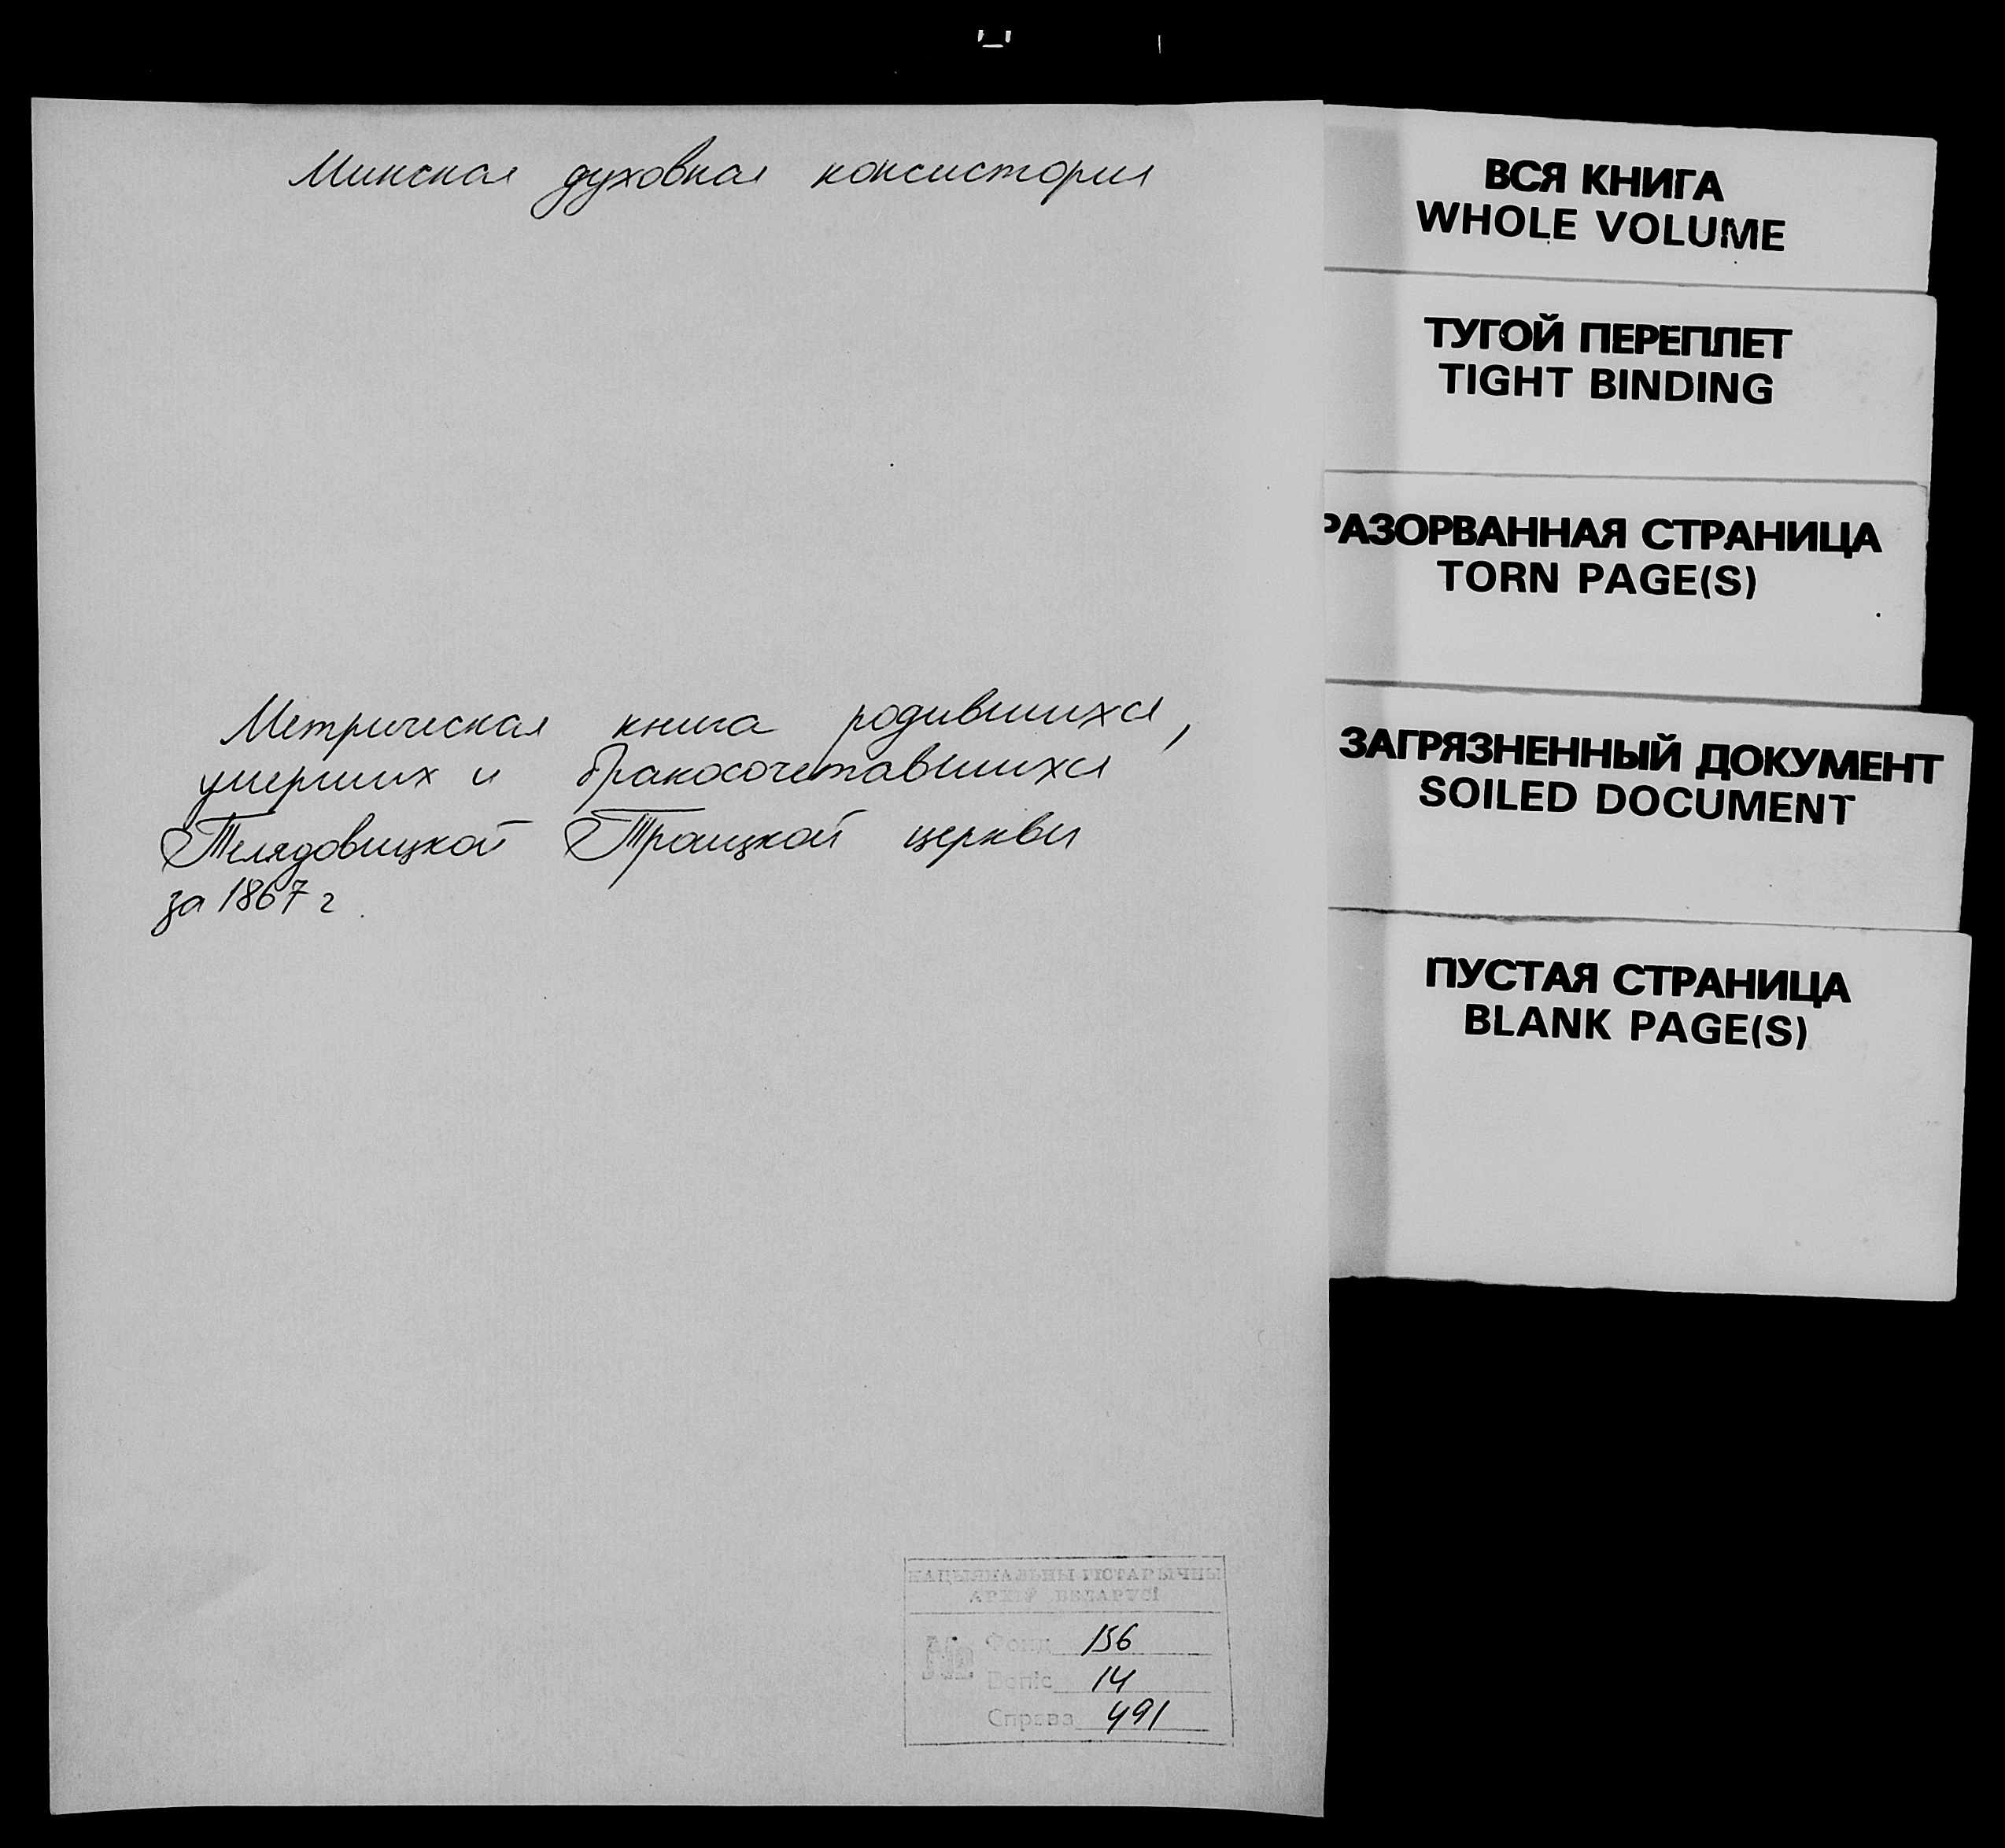 Минская духовная консистория
Метрическая книга родившихся,
умерших и бракосочетавшихся
Телядовицкой Троицкой церкви
за 1867 г.
НАЦЫЯНАЛЬНЫ ГІСТАРЫЧНЫ
АРХІЎ БЕЛАРУСІ
№ Фонд 156
Вопіс 14
Справа 491
ВСЯ КНИГА
WHOLE VOLUME
ТУГОЙ ПЕРЕПЛЕТ
TIGHT BINDING
РАЗОРВАННАЯ СТРАНИЦА
TORN PAGE(S)
ЗАГРЯЗНЕННЫЙ ДОКУМЕНТ
SOILED DOCUMENT
ПУСТАЯ СТРАНИЦА
BLANK PAGE(S)